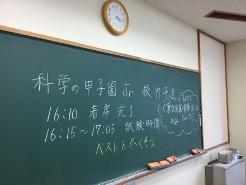 科学の甲子園 Jr 校内予選
16:10 着席完了
16:15～17:05 試験時間
ベストを尽くそう